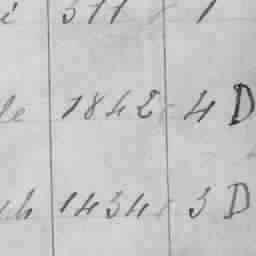 i 311 1
le 1842 4 D
ch 1434 3 D